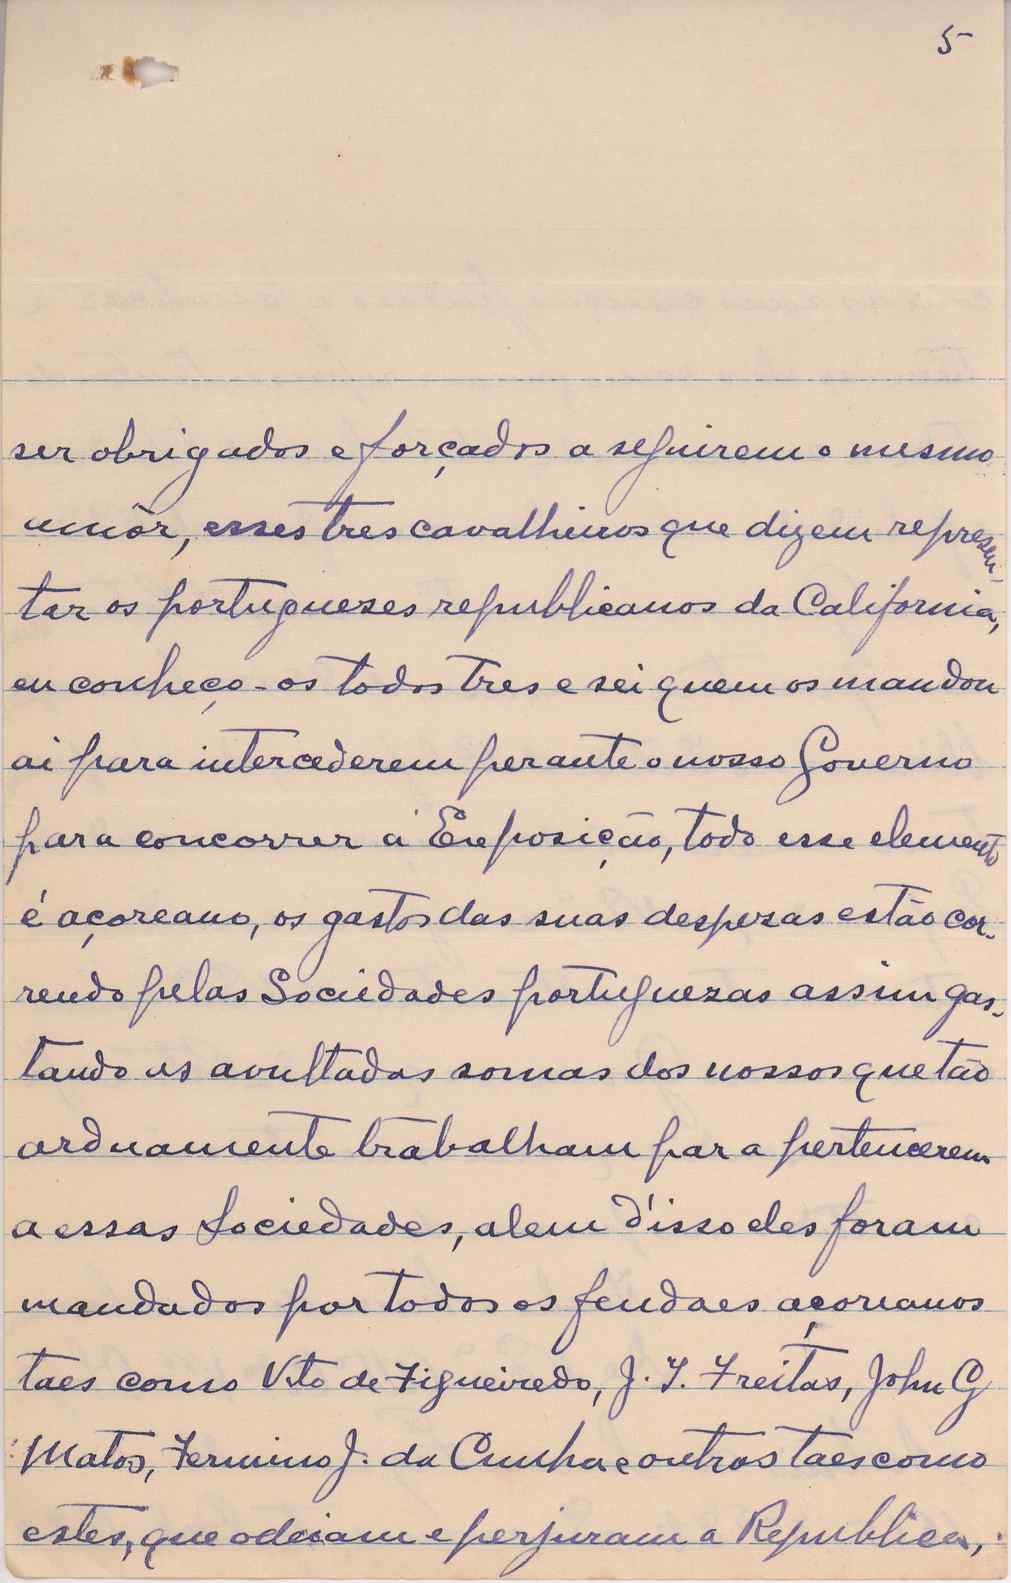 5
ser obrigados e forçados a seguirem o mesmo
umôr, esses tres cavalheiros que dizem represen-
tar os portugueses republicanos da California,
eu conheço-os todos tres e sei quem os mandou
ai para intercederem perante o nosso Governo
para concorrer á Exposição, todo esse elemento
é açoreano, os gastos das suas despezas estão cor-
rendo pelas Sociedades portuguezas assim gas-
tando as avultadas somas dos nossos que tão
arduamente trabalham para pertencerem
a essas Sociedades, alem d'isso eles foram
mandados por todos os feudaes açorianos
taes como Vto de Figueiredo, J. F. Freitas, John G
Matos, Fermino J. da Cunha e outros taes como
estes, que odeiam e perjuram a Republica,